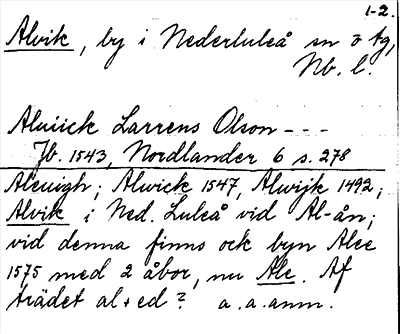 1-2.
Alvik, by i Nederluleå sn o tg,
Nb. l.
Aluiick Larrens Olson - - -
Jb. 1543, Nordlander 6 s. 278
Aleuigh; Alwick 1547, Alwijk 1492;
Alvik i Ned. Luleå vid Al-ån;
vid denna finns ock byn Alee
1575 med 2 åbor, nu Ale. Af
trädet al + ed? a.a. anm.